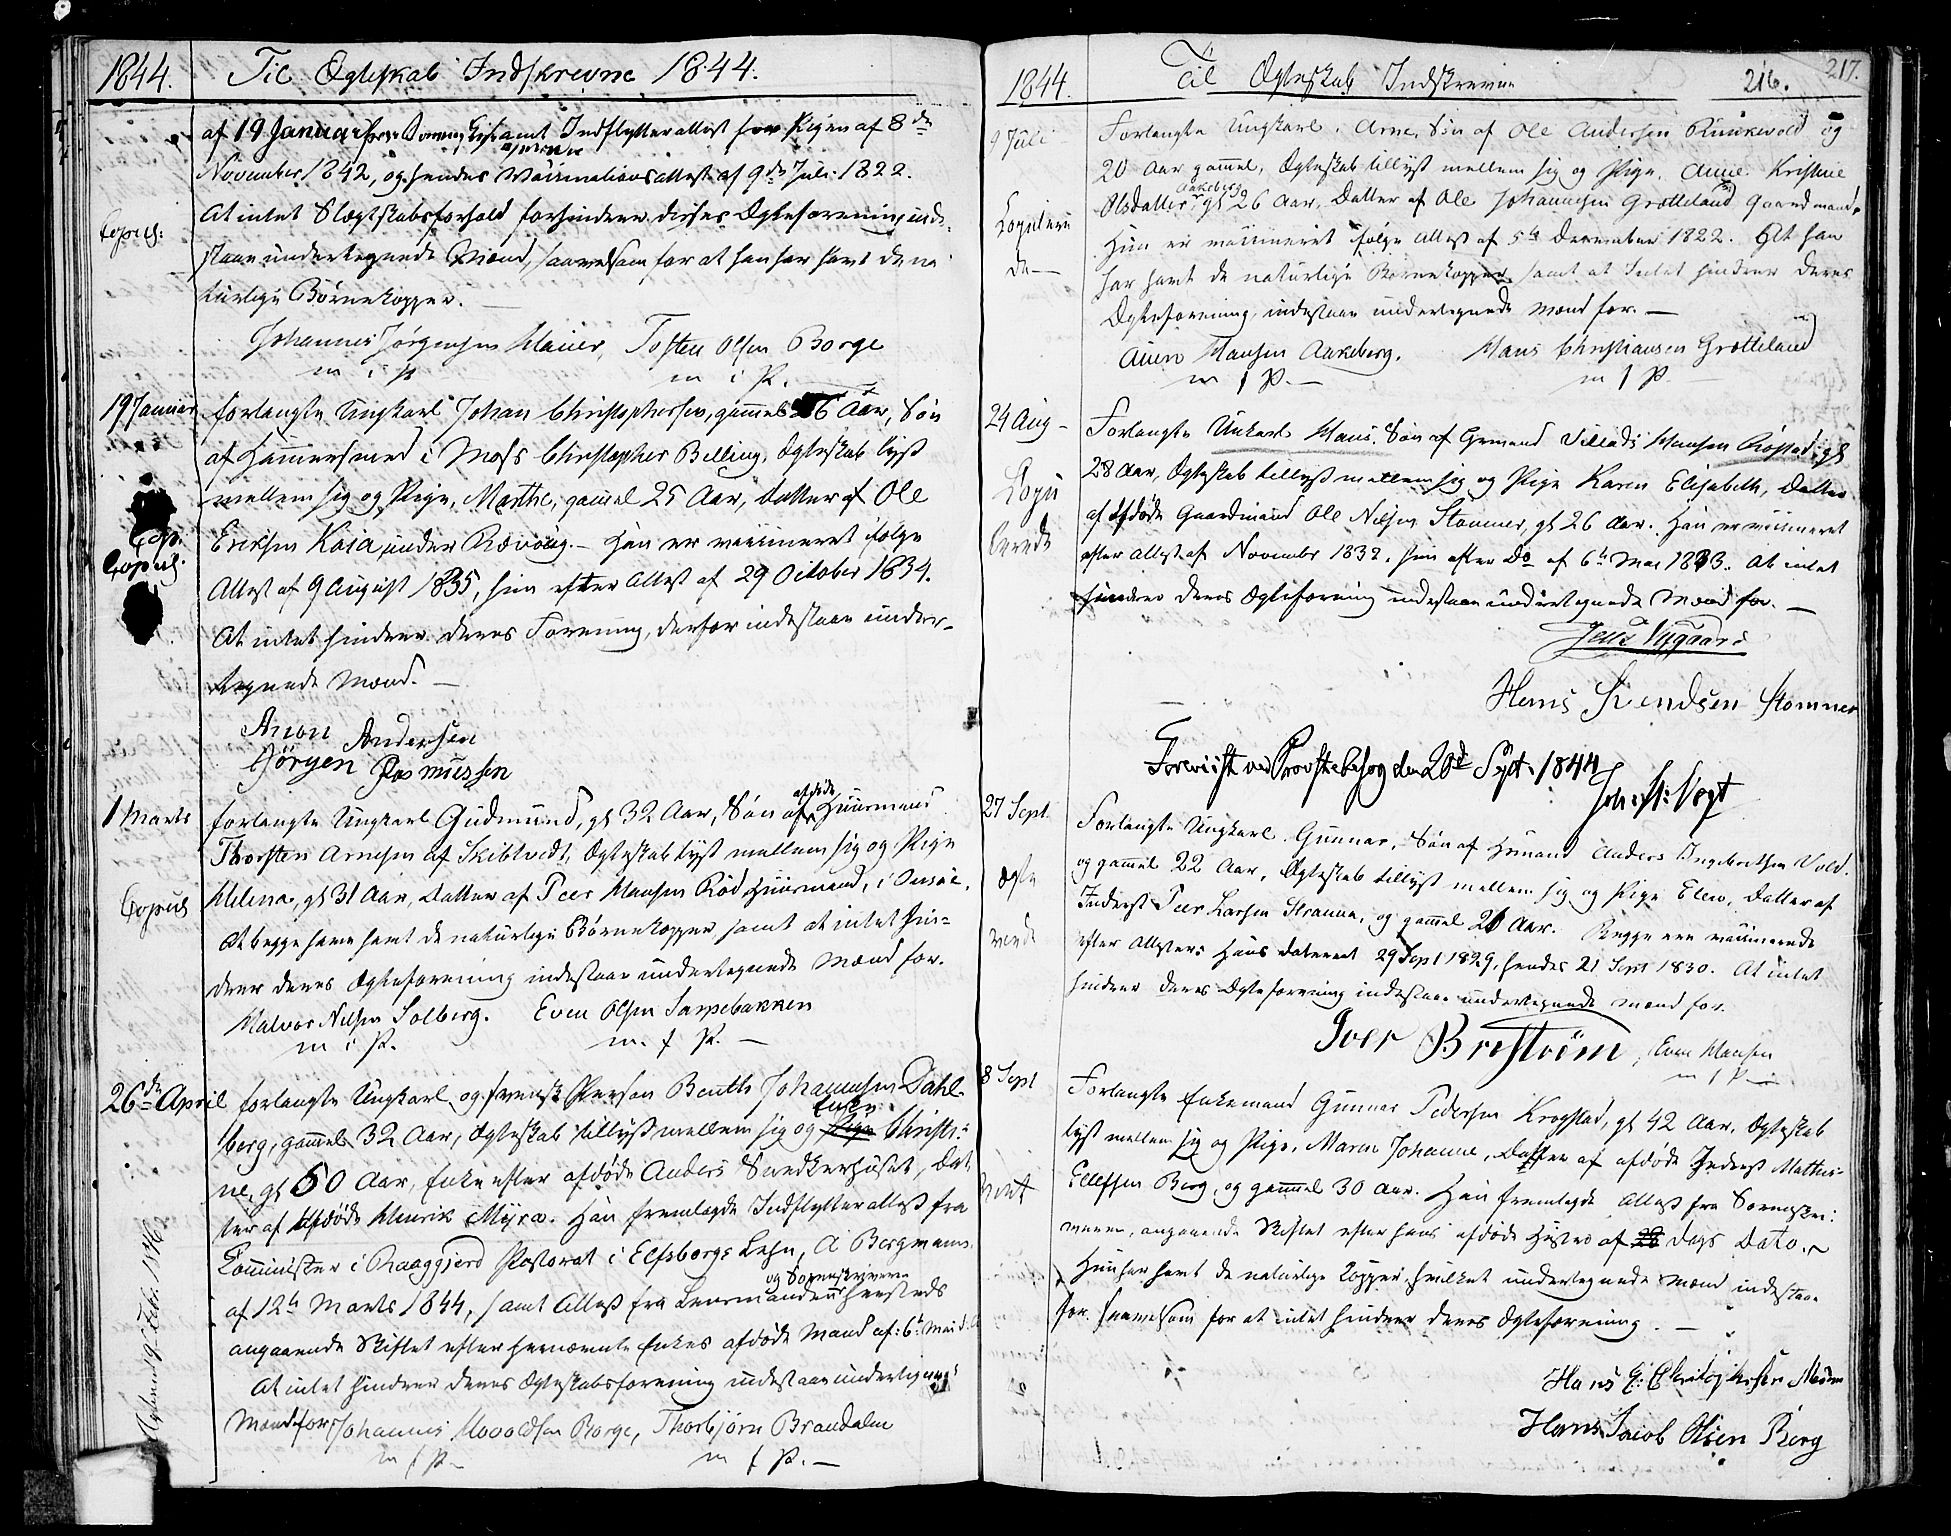 1844. Til Ægteskab Indskrevne 1844.
af 19 Januar samt Indflytterattest for Pigen af 8de
November 1842, og hendes Vaccinationsattest af 9de Juli 1822.
At intet Slægtskabsforhold forhindrer disses Ægteforening inde-
Copul:
staae undertegnede Mænd, saavelsom for at han har havt de na
turlige Børnekopper. —
Johannes Jørgensen Tosten Olsen Borge
m i P m i P. —
19 Januar
forlangte Ungkarl Johan Christophersen, gammel 26 Aar, Søn
af Hammersmed i Moss Christopher Belling, Ægteskab lyst
mellem sig og Pige, Marthe, gammel 25 Aar, Datter af Ole
Cop.
Eriksen Kasa under Rævoug. — Han er vaccineret ifølge
Copul:
Attest af 9 August 1835, hun efter Attest af 29 October 1834.
At intet hindrer deres Forening, derfor indestaae under-
tegnede Mænd. —
Anon Andersen
Jørgen Rasmussen
1 Marts
forlangte Ungkarl Gudmund, gl 32 Aar, Søn af afdøde Huusmand
Thorsten Arnesen af Skibtvedt, Ægteskab lyst mellem sig og Pige
Copul
Helena, gl 31 Aar, Datter af Peer Hansen Rød Huusmand, i Onsøe.
At begge have havt de naturlige Børnekopper samt at intet hin-
drer deres Ægteforening indestaae undertegnede Mænd for.
Halvor Nilsen Solberg. Even Olsen Sarpebakken
m i P. m. f P. —
26de April forlangte Ungkarl og svensk Person Bent Johannesen Dahl-
berg, gammel 32 Aar, Ægteskab tillyst mellem sig og Pige Enke Christi-
ne, gl 50 Aar, Enke efter afdøde Anders Snedkerhuset, Dat
ter af Afdøde Henrik Myra. Han fremlagde Indflytterattest fra
Comminister i Raaggjerd Pastorat i Elfsborgs Lehn, A Bergmann
af 12te Marts 1844, samt Attest fra Lensmanden og Sorenskriveren
angaaende Skiftet efter hernævnte Enkes afdøde Mand af: 6te Mai
At intet hindrer deres Ægteskabsforening indestaae undertegnede
Mænd for Johannes Borge, Thorbjørn Brandalen
m f P. — m f P. —
1844. Til Ægteskab Indskrevne 216. 217.
9 Juli
Forlangte Ungkarl, Arne, Søn af Ole Andersen og
20 Aar gammel, Ægteskab tillyst mellem sig og Pige, Anne Kristine
Aakeberg
Olsdatter gl 26 Aar, Datter af Ole Johannesen Grøtteland Gaardmand.
Copulere
de —
Hun er vaccineret ifølge Attest af 5te December 1822. At han
har havt de naturlige Børnekopper, samt at Intet hindrer deres
Ægteforening, indestaae undertegnede Mænd for. —
Hansen Aakeberg. Hans Christiansen Grøtteland
m f P. — m f P. —
24 Aug —
Forlangte Unkarl Hans, Søn af Hansen gl
28 Aar, Ægteskab tillyst mellem sig og Pige Karen Elisabeth, Datter
Copu
lerede
af afdøde Gaardmand Ole Nilsen Stomner, gl 26 Aar. Han er vaccineret
efter Attest af November 1832. hun efter Do af 6te Mai 1833. At intet
hindrer deres Ægteforening indestaae undertegnede Mænd for. —
Jens Nygaard
Hans Svendsen Stomner
Foreviist ved Provstebesøg den 28de Sept. 1844
Joh. St: Vogt
27 Sept.
Forlangte Ungkarl Gunnar, Søn af Husmand Anders Ingebretsen Vold.
og gammel 22 Aar, Ægteskab tillyst mellem sig og Pige Elen, Datter af
Ægte
viede
Inderst Peer Larsen Stranna, og gammel 21 Aar. Begge ere vaccinerede
efter Attester: Hans dateret 29 Sept 1829, hendes 21 Sept 1830. At intet
hindrer deres Ægteforening indestaae undertegnede Mænd for.
Iver Brostrøm, Even Hansen
m f P. —
8 Sept
Forlangte Enkemand Gunner Pedersen Krogstad, gl 42 Aar, Ægteskab
lyst mellem sig og Pige, Maren Johanne, Datter af afdøde Inderst Mathis
Ellefsen Berg, og gammel 30 Aar. Han fremlagde Attest fra Sorenskri-
veren, angaaende Skiftet efter hans afdøde Hustrue af 28 Dags Dato. —
Hun har havt de naturlige Kopper, hvilket undertegnede Mænd indestaae
for, saavelsom for at intet hindrer deres Ægteforening. —
Hans
Hans Jacob Olsen Berg